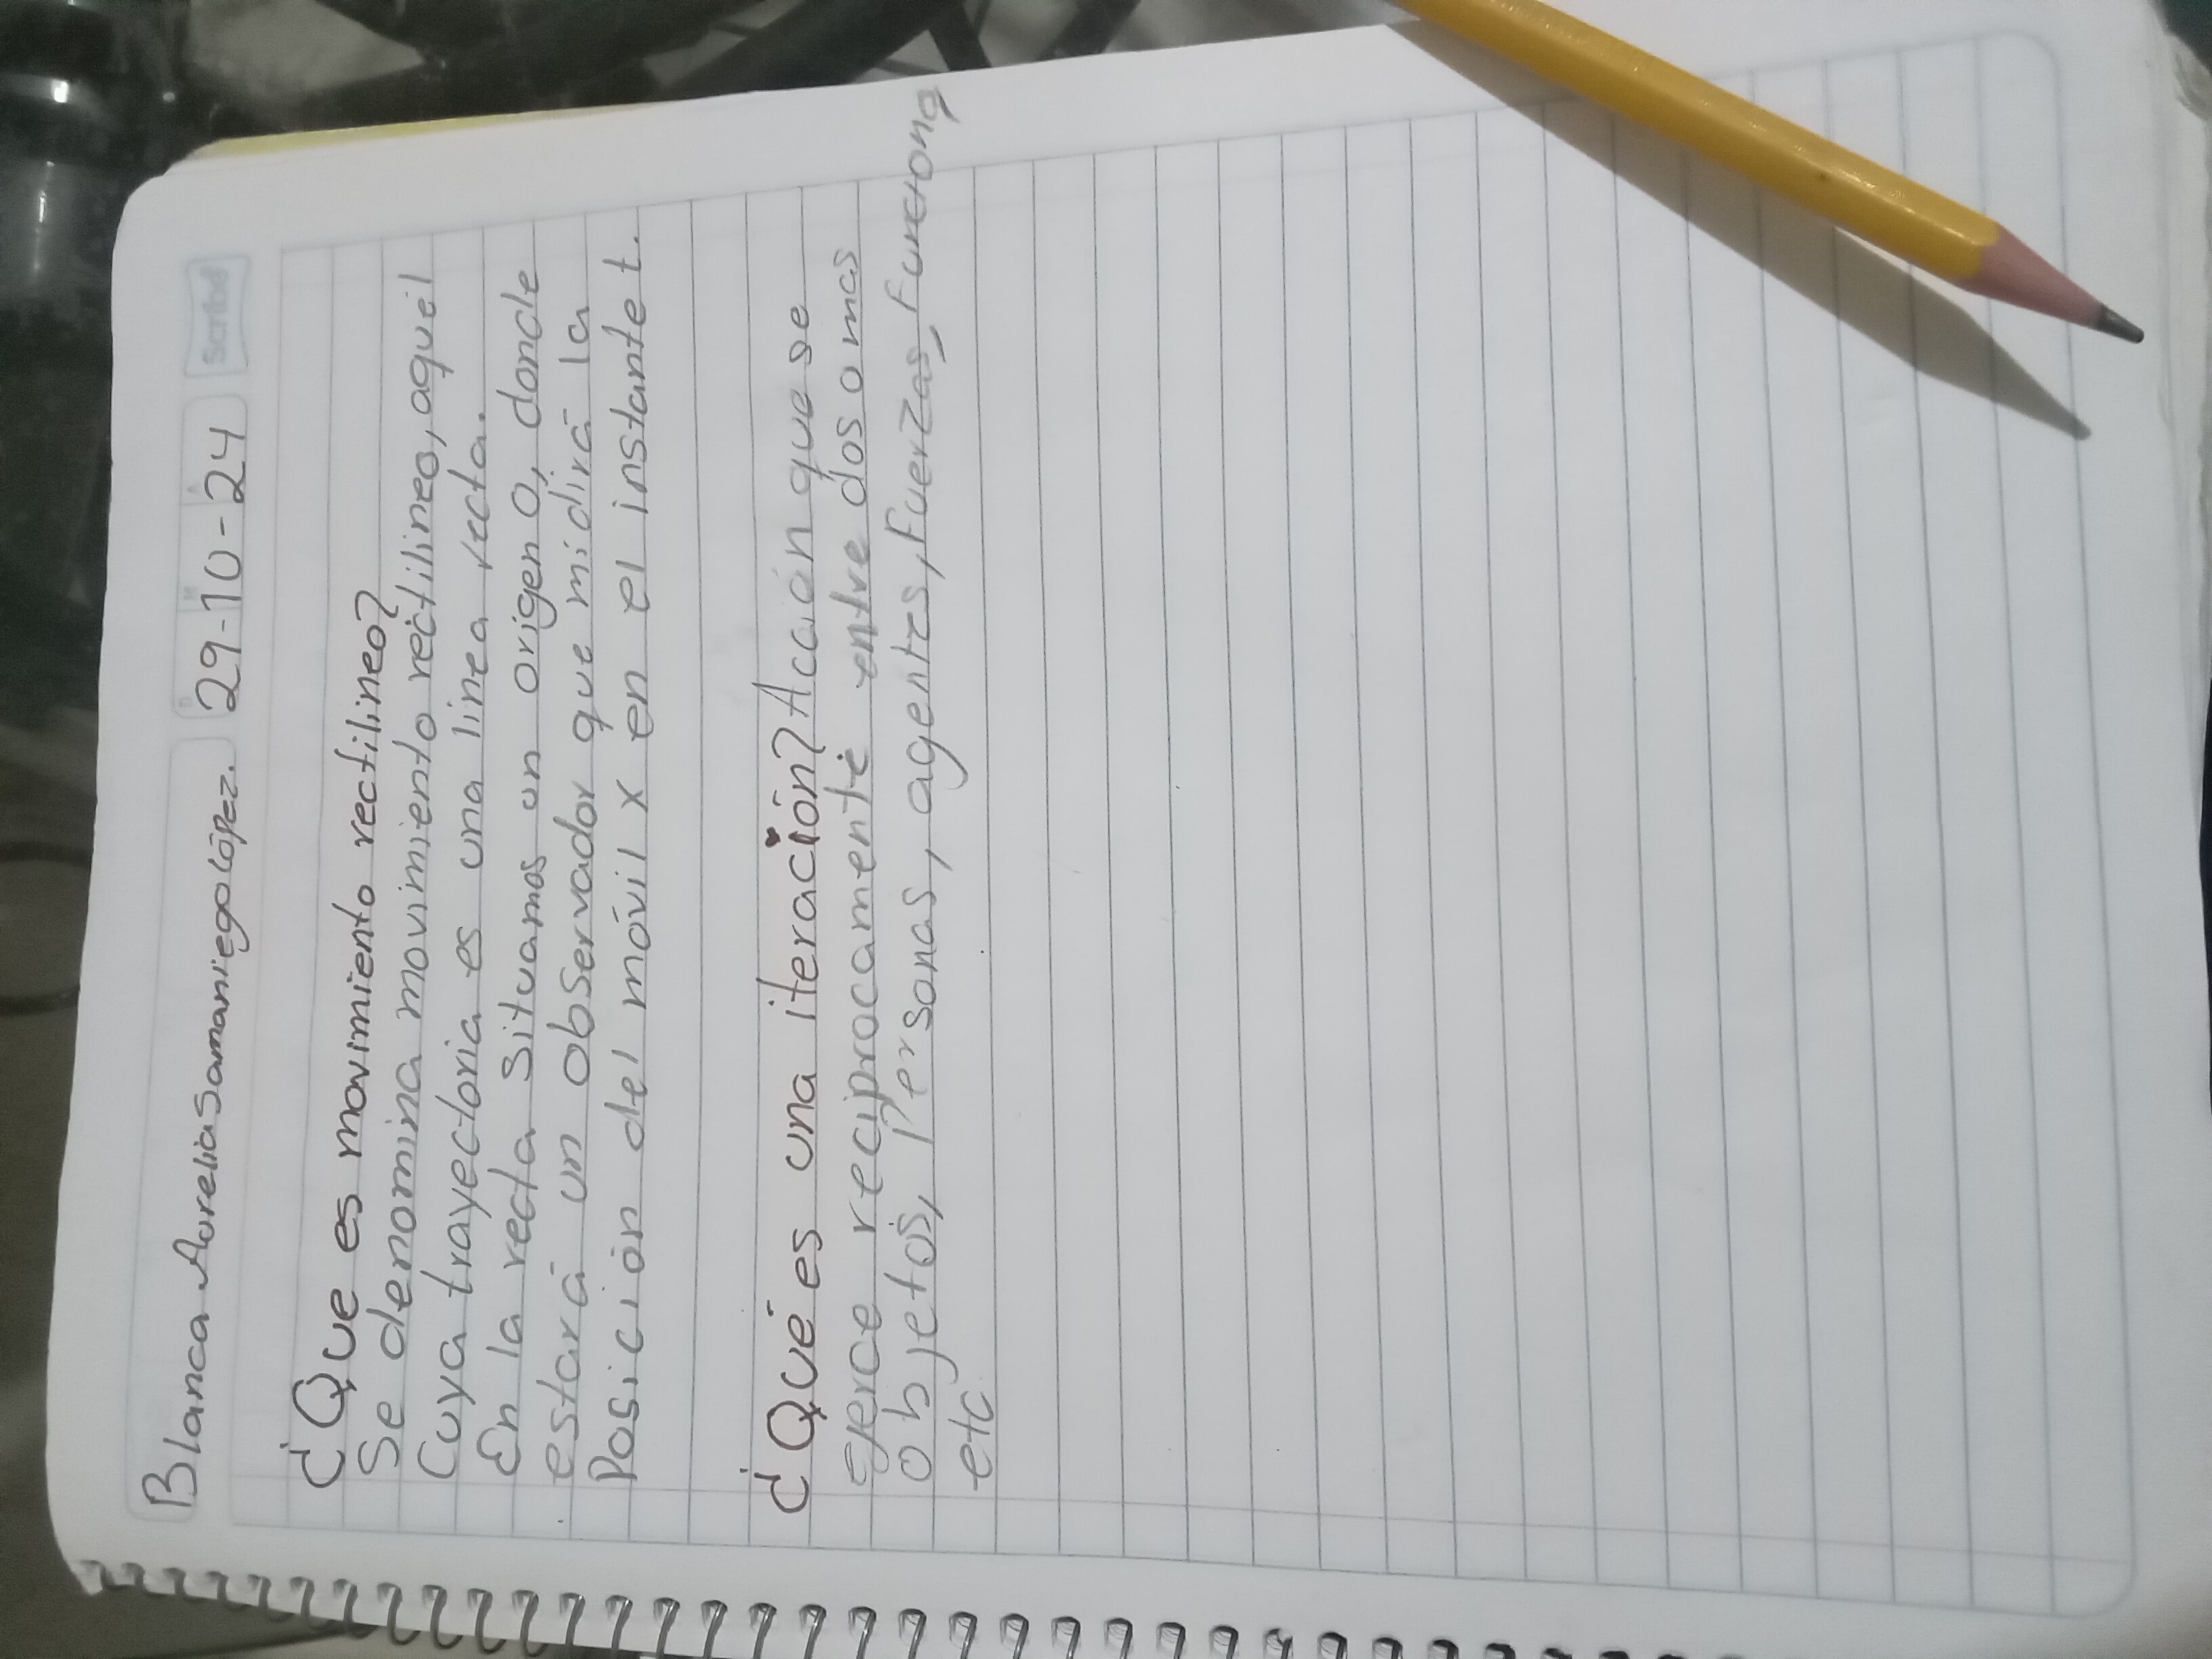 Blanca Aurelia Samaniego López. 29-10-24 Scribe
¿Que es movimiento rectilineo?
Se denomina movimiento rectilineo, aquél
Cuya trayectoria es una linea recta.
En la recta situamos un origen O, donde
estará un observador que midirá la
Posición del móvil x en el instante t.
¿Qué es una iteración? Acción que se
ejerce reciprocamente entre dos o mas
objetos, Personas, agentes, Fuerzas, Funciona,
etc